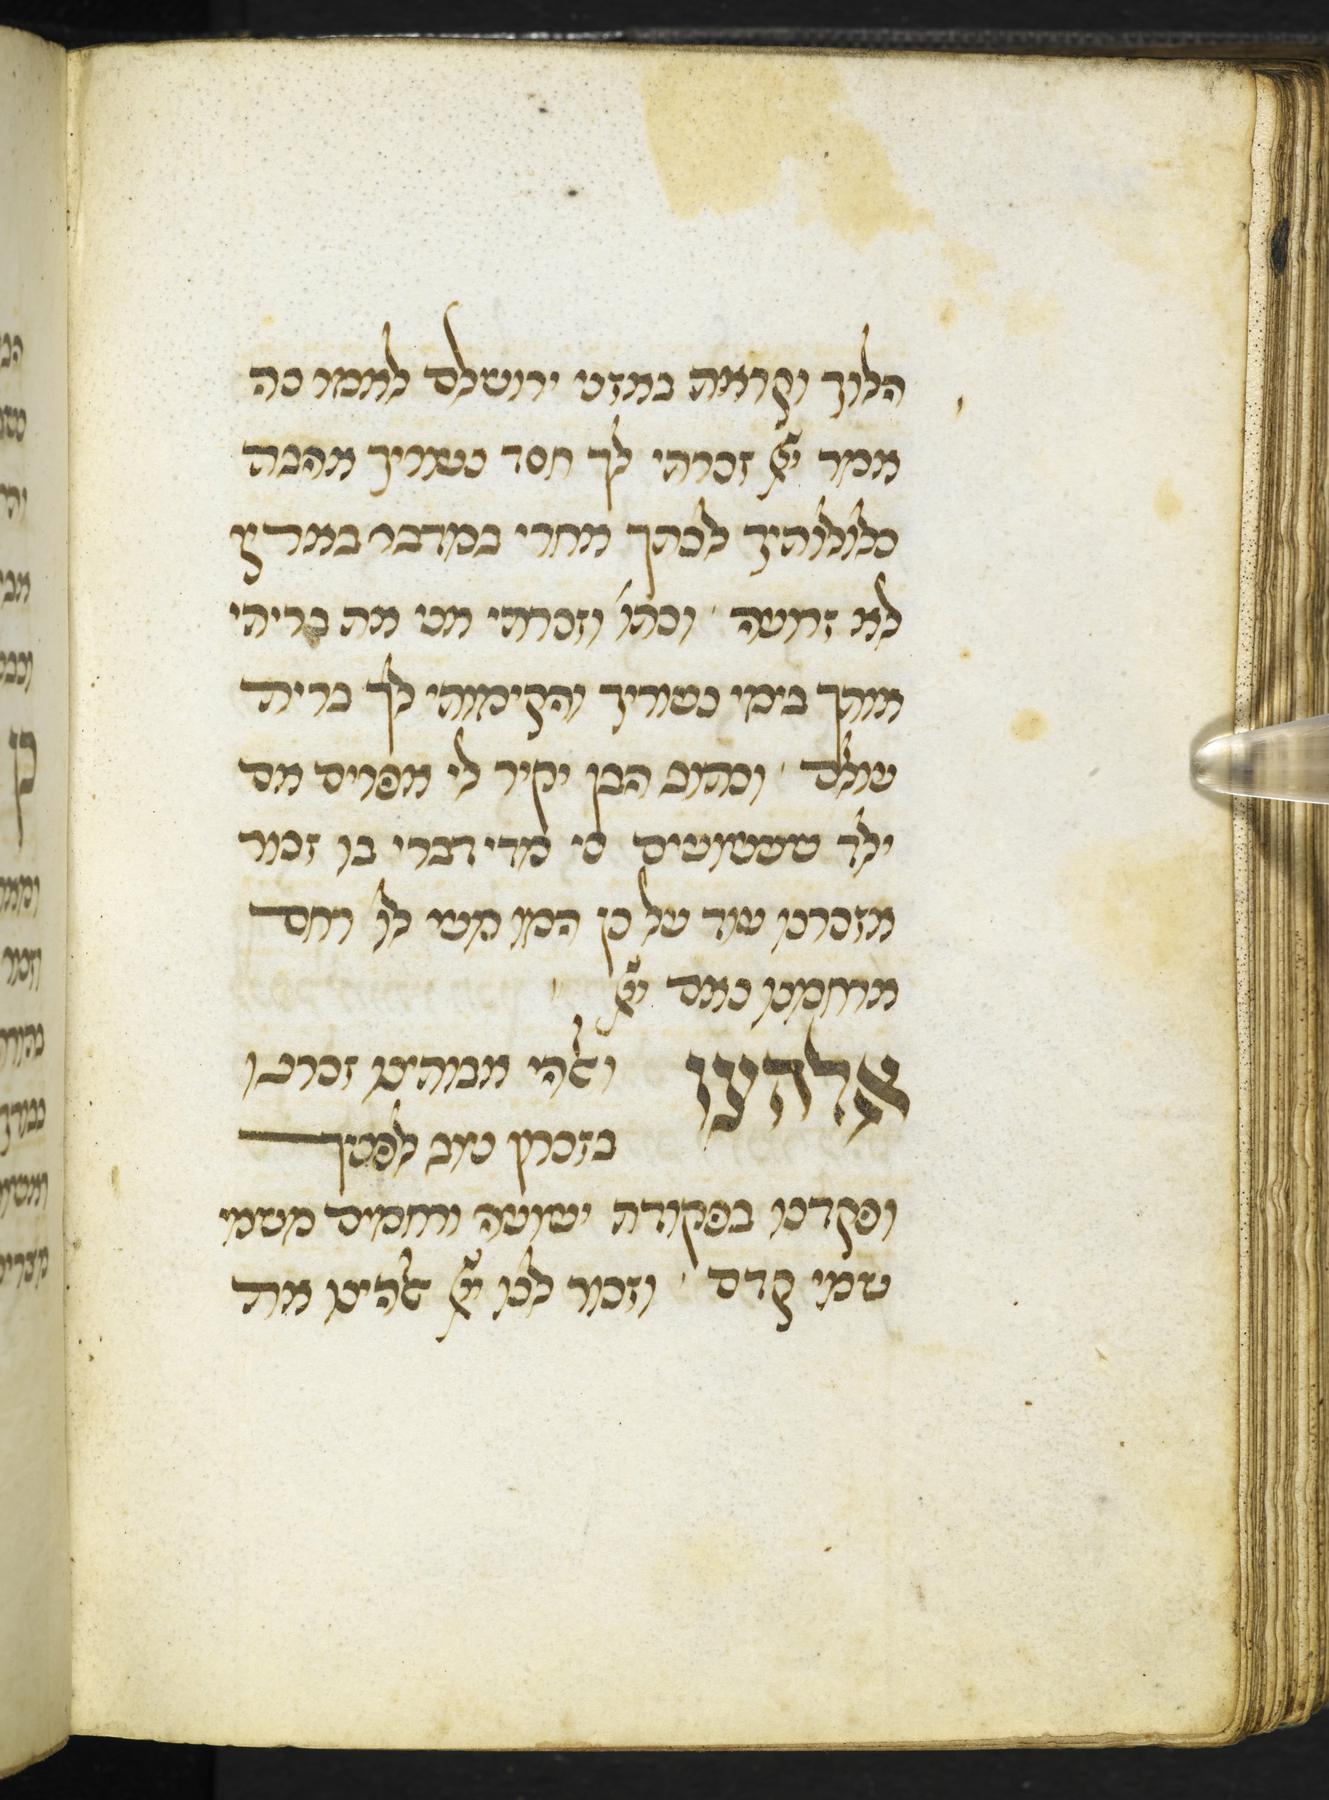 הלוך וקראת באזני ירושלם לאמר כה
אמר יי זכרתי לך חסד נעוריך אהבת
כלולותיך לכתך אחרי במדבר בארץ
לא זרועה וכתו׳ וזכרתי אני את בריתי
אותך בימי נעוריך והקימותי לך ברית
עולם וכתוב הבן יקיר לי אפרים אם
ילד שעשועים כי מדי דברי בו זכור
אזכרנו עוד על כן המו מעי לו רחם
ארחמנו נאם יי
אלהינו ואלהי אבותינו זכרנו
בזכרון טוב לפניך
ופקדנו בפקודת ישועה ורחמים משמי
שמי קדם וזכור לנו יי אלהינו את